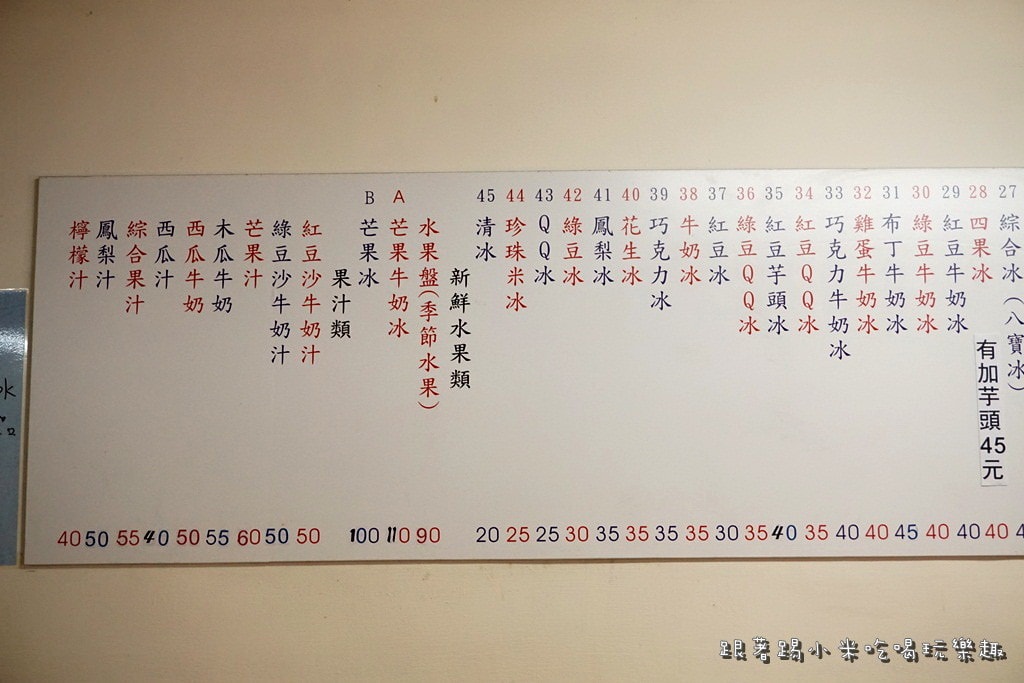 27 綜合冰(八寶冰)
28 四果冰 40
有加芋頭45元
29 紅豆牛奶冰 40
30 綠豆牛奶冰 40
31 布丁牛奶冰 45
32 雞蛋牛奶冰 40
33 巧克力牛奶冰 40
34 紅豆QQ冰 35
35 紅豆芋頭冰 40
36 綠豆QQ冰 35
37 紅豆冰 30
38 牛奶冰 35
39 巧克力冰 35
40 花生冰 35
41 鳳梨冰 35
42 綠豆冰 30
43 QQ冰 25
44 珍珠米冰 25
45 清冰 20
新鮮水果類
水果盤(季節水果) 90
A 芒果牛奶冰 110
B 芒果冰 100
果汁類
紅豆沙牛奶汁 50
綠豆沙牛奶汁 50
芒果汁 60
木瓜牛奶 55
西瓜牛奶 50
西瓜汁 40
綜合果汁 55
鳳梨汁 50
檸檬汁 40
跟著踢小米吃喝玩樂趣